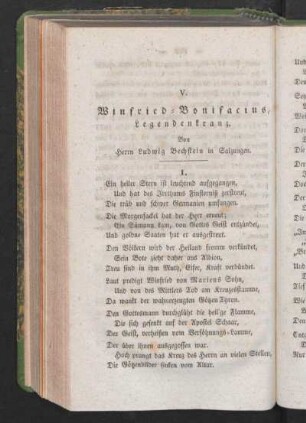 V.
Winfried-Bonifacius,
Legendenkranz.
Von
Herrn Ludwig Bechstein in Salzungen.
1.
Ein heller Stern ist leuchtend aufgegangen,
Und hat des Irrthums Finsterniß zerstreut,
Die trüb und schwer Germanien umfangen.
Die Morgenfackel hat der Herr erneut;
Ein Flämmung kam, von Gottes Geist entzündet,
Und goldne Saaten hat er ausgestreut.
Den Völkern wird der Heiland fromm verkündet,
Sein Bote zieht daher aus Albion,
Treu sind in ihm Muth, Eifer, Kraft verbündet.
Laut predigt Winfried von Mariens Sohn,
Und von des Mittlers Tod am Kreuzesstamme,
Da wankt der wahnerzeugten Götzen Thron.
Den Gottesmann durchglüht die heilge Flamme,
Die sich gesenkt auf der Apostel Schaar,
Der Geist, verheißen vom Versöhnungs-Lamme,
Der über ihnen ausgegossen war.
Hoch prangt das Kreuz des Herrn an vielen Stellen,
Die Götzenbilder sinken vom Altar.